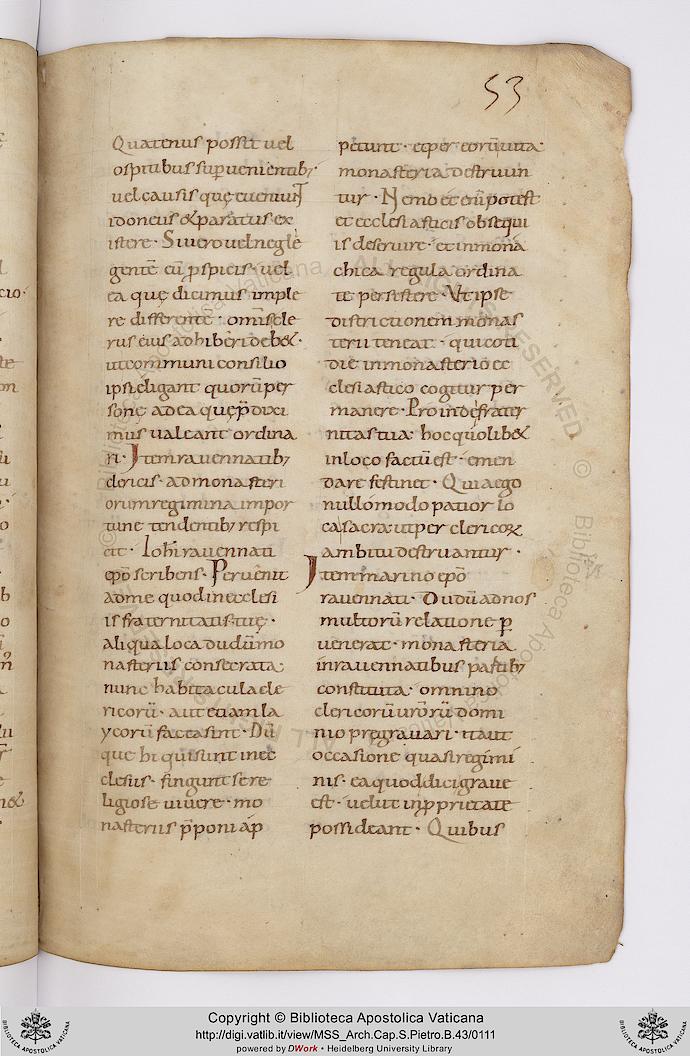 53
Quatenus possit uel
ospitibus sup̄uenientib;
uel causis quę eueniunt
idoneus & paratus ex
istere · Si uero uel negle
gentē eū p̄spicis · uel
ea quę dicimus imple
re differentē · om̄is cle
rus eius adhiberi deb& ·
ut communi consilio
ipsi eligant quorū per
sonę ad ea quę p̄dixi
mus ualeant ordina
ri · Item rauennatib;
clericis · ad monasteri
orum regimina impor
tune tendentib; respi
cit · Iohi rauennati
ep̄o scribens · Peruenit
ad me quod in ecclesi
is fraternitatis tuę ·
aliqua loca dudū mo
nasteriis consecrata;
nunc habitacula cle
ricorū · aut etiam la
ycorū facta sint · Dū
que hi qui sunt in ec
clesiis · fingunt se re
ligiose uiuere · mo
nasteriis p̄poni ap̄
petunt · et per eorū uita
monasteria destruun
tur · Nemo et eni potest
et ecclesiasticis obsequi
is deseruire · et in mona
chica regula ordina
te persistere · Vt ipse
districtionem monas
terii teneat · qui coti
die in monasterio ec
clesiastico cogitur per
manere · Proinde frater
nitas tua · hoc quolib&
in loco factū est · emen
dare festinet · Quia ego
nullo modo patior lo
ca sacra ut per clericoꝝ
ambitu destruantur ·
Item marino ep̄o
rauennati · Dudū ad nos
multorū relatione p̄
uenerat · monasteria
in rauennatibus partib;
constituta · omnino
clericorū ur̄orū domi
nio pregrauari · ita ut
occasione quasi regimi
nis · ea quod dici graue
est · uelut in p̄prietate
possideant · Quibus
Copyright © Biblioteca Apostolica Vaticana
http://digi.vatlib.it/view/MSS_Arch.Cap.S.Pietro.B.43/0111
powered by DWork • Heidelberg University Library